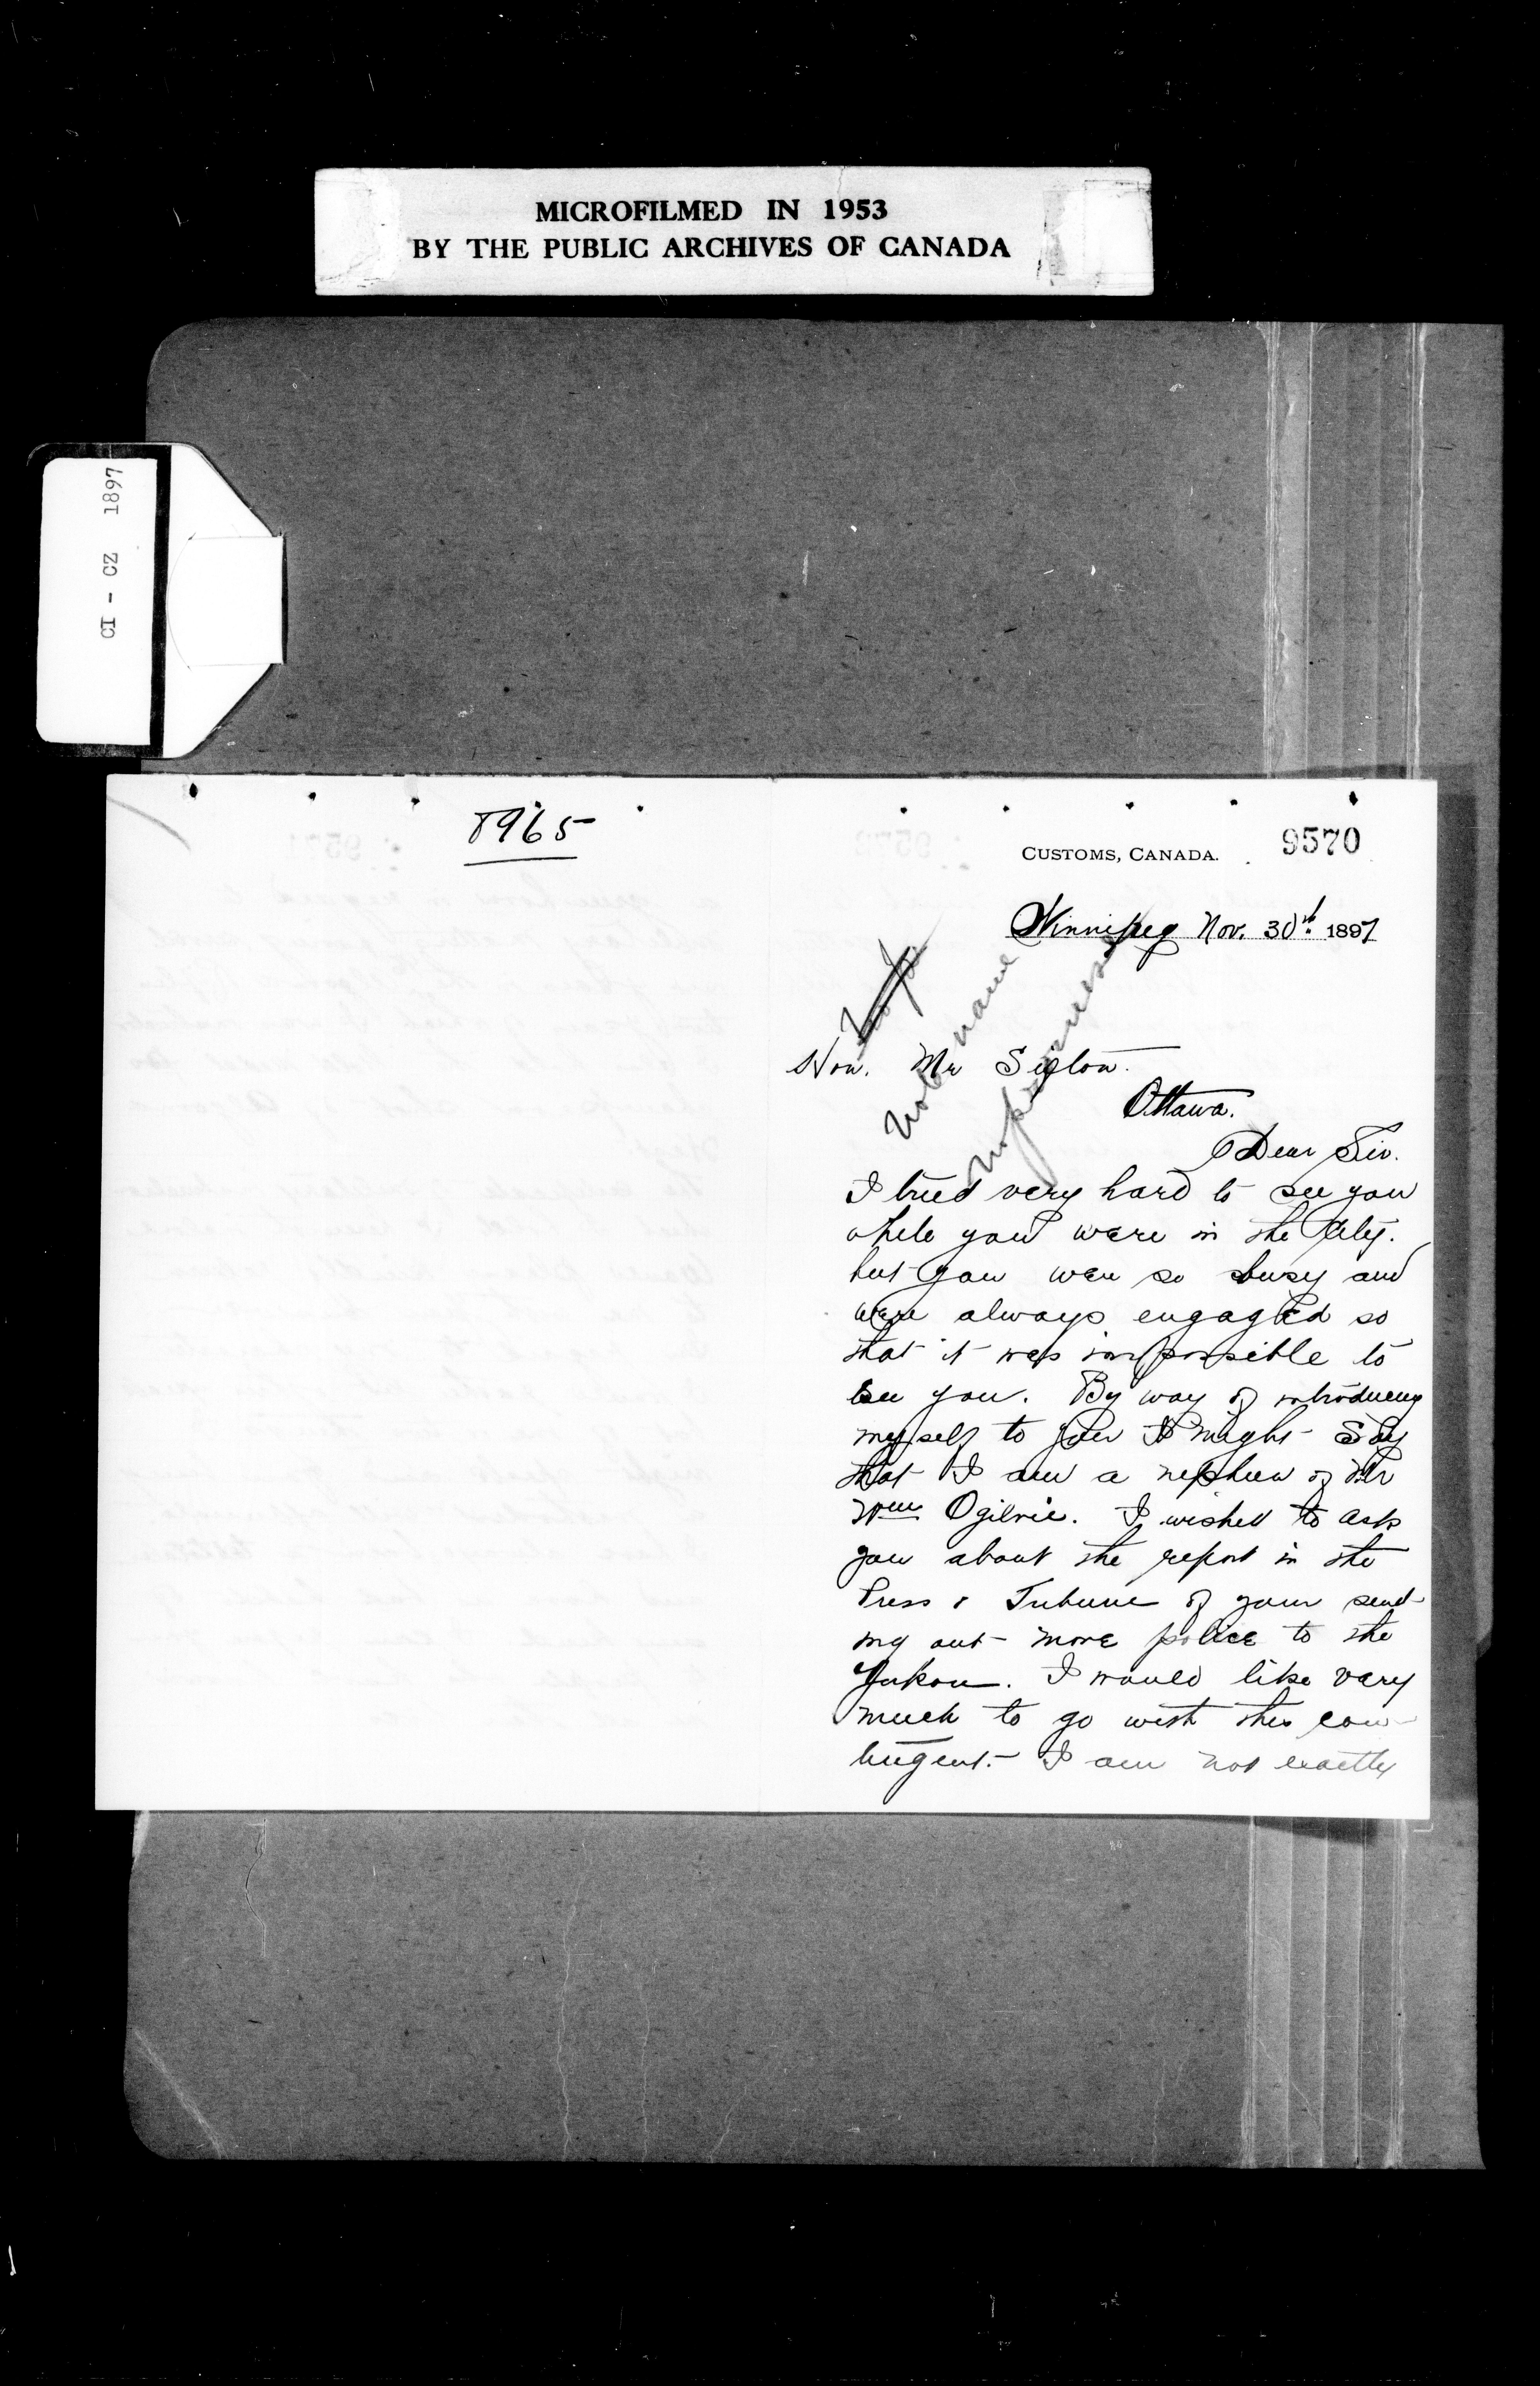 MICROFILMED IN 1953
BY THE PUBLIC ARCHIVES OF CANADA
CI - CZ 1897
8965
CUSTOMS, CANADA.
9570
Winnipeg Nov. 30th 1897
Note name
Hon. Mr Sifton.
Ottawa.
Dear Sir.
I tried very hard to see you
while you were in the City.
but you were so busy and
were always engaged so
that it was impossible to
see you. By way of introducing
myself to you I might Say
that I am a nephew of Mr
Wm Ogilvie. I wished to ask
you about the report in the
Press & Tribune of your send-
ing out more police to the
Yukon. I would like very
much to go with this con-
tingent. I am not exactly